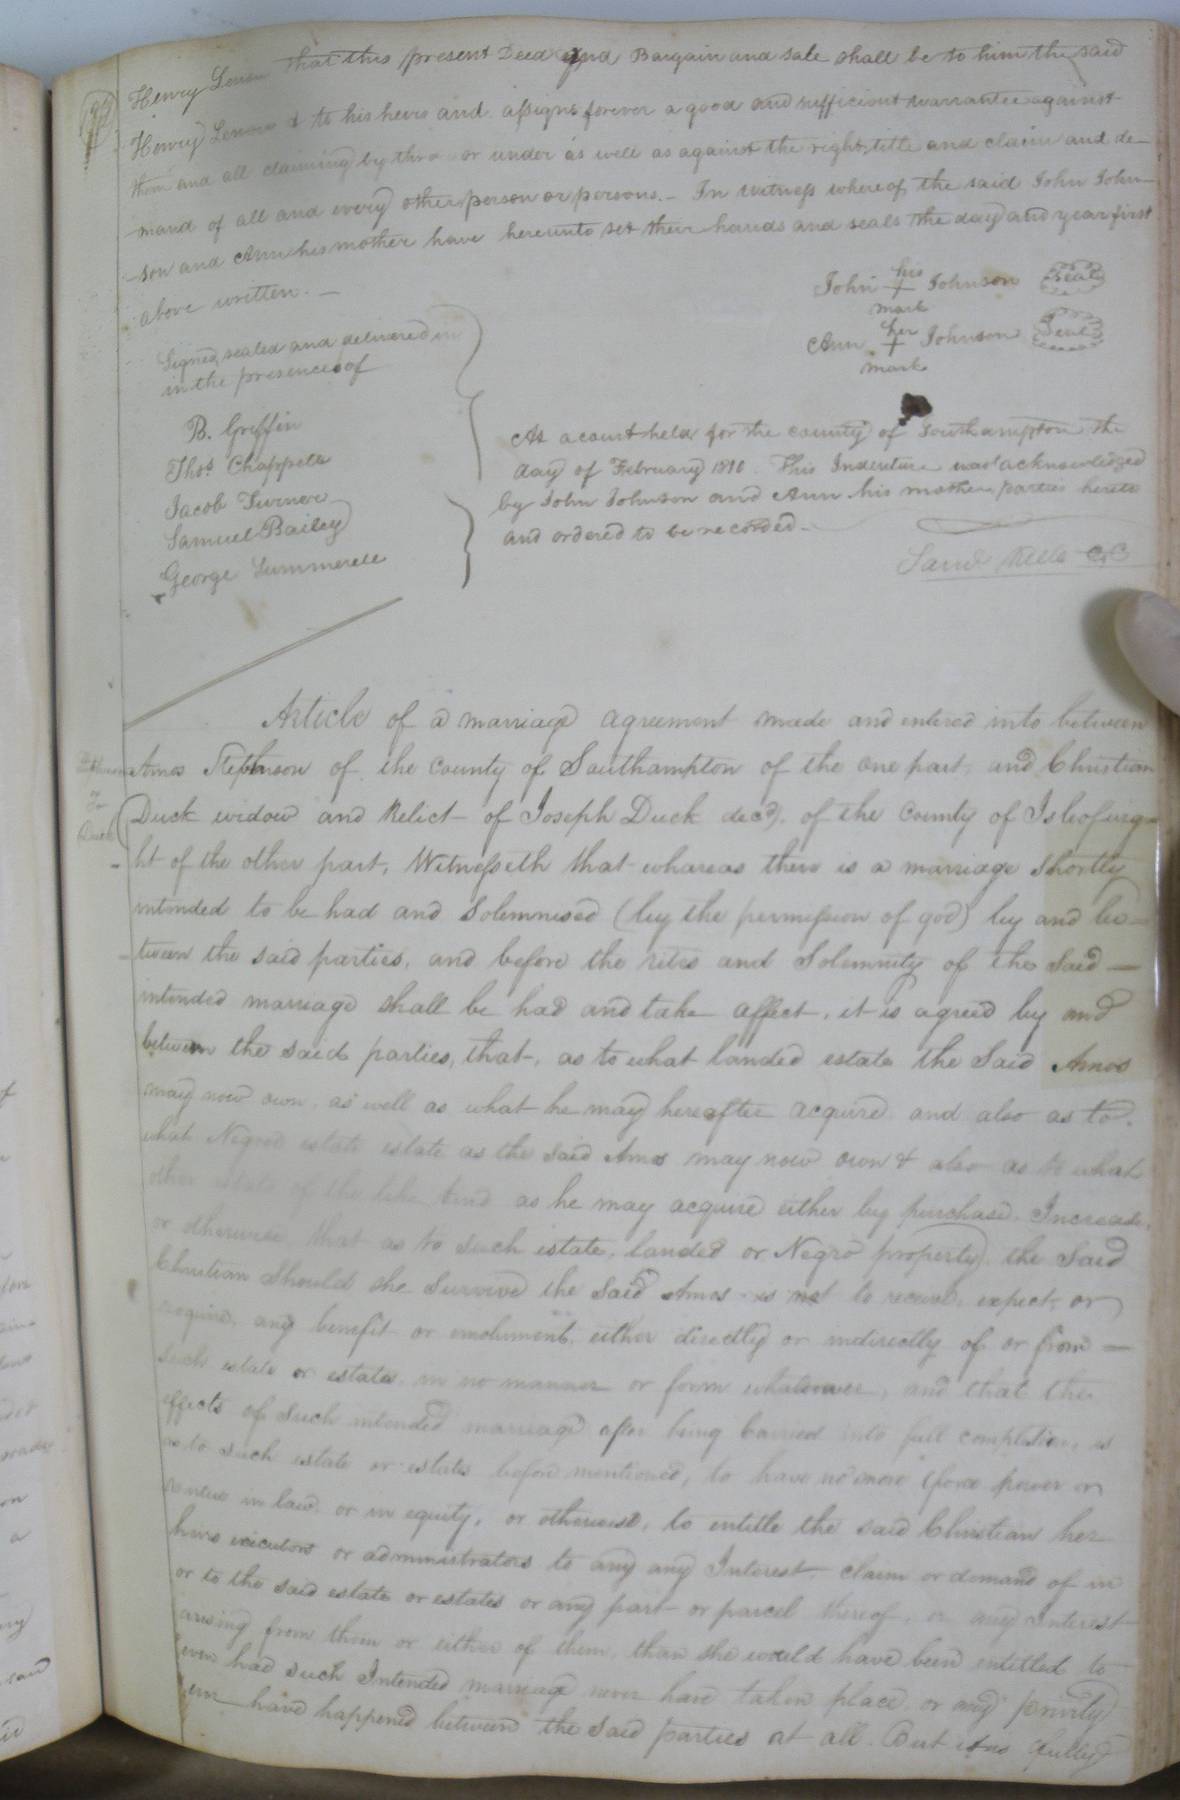 that this present Deed and Bargain and sale shall be to him the said
Henry
Henry & to his heirs and assigns forever a good and sufficient warrantee against
them and all claiming by thro or under as well as against the right, title and claim and de-
mand of all and every other person or persons. - In witness whereof the said John John-
son and Ann his mother have hereunto set their hands and seals the day and year first
above written. -
John his + mark Johnson Seal
Ann her + mark Johnson Seal
Signed, sealed and delivered in
in the presence of
B. Griffin
Thos. Chappels
Jacob Turner
Samuel Bailey
George Summerell
At a court held for the county of Southampton the
day of February 1810. This Indenture was acknowledged
by John Johnson and Ann his mother parties hereto
and ordered to be recorded. -
Article of a marriage agreement made and entered into between
Amos Stephenson of the county of Southampton of the one part, and Christian
Duck widow and Relict of Joseph Duck decd. of the County of Isleofwig-
ht of the other part, Witnesseth that whareas there is a marriage shortly
intended to be had and Solemnised (by the permission of god) by and be-
tween the said parties, and before the rites and Solemnity of the Said -
intended marriage shall be had and take affect, it is agreed by and
between the said parties, that, as to what landed estate the Said Amos
may now own, as well as what he may hereafter acquire and also as to
what Negroe estate estate as the said Amos may now own & also as to what
other estate of the like kind as he may acquire either by purchase, Increase,
or otherwise, that as to such estate, landed or Negro property, the Said
Christian Should she Survive the Said Amos is not to receive, expect, or
require, any benefit or emolument, either directly or indirectly of or from -
Such estate or estates in no manner or form whatever, and that the
effects of Such intended marriage after being Carried into full completion, is
as to such estate or estates before mentioned, to have no more force power or
in law, or in equity, or otherwise, to entitle the said Christian her
heirs executors or administrators to any any Interest, claim or demand of in
or to the said estate or estates or any part or parcel thereof, or any interest
arising from them or either of them, than she would have been entitled to
even had such Intended marriage never have taken place, or any privity
ever have happened between the Said parties at all. But it is fully